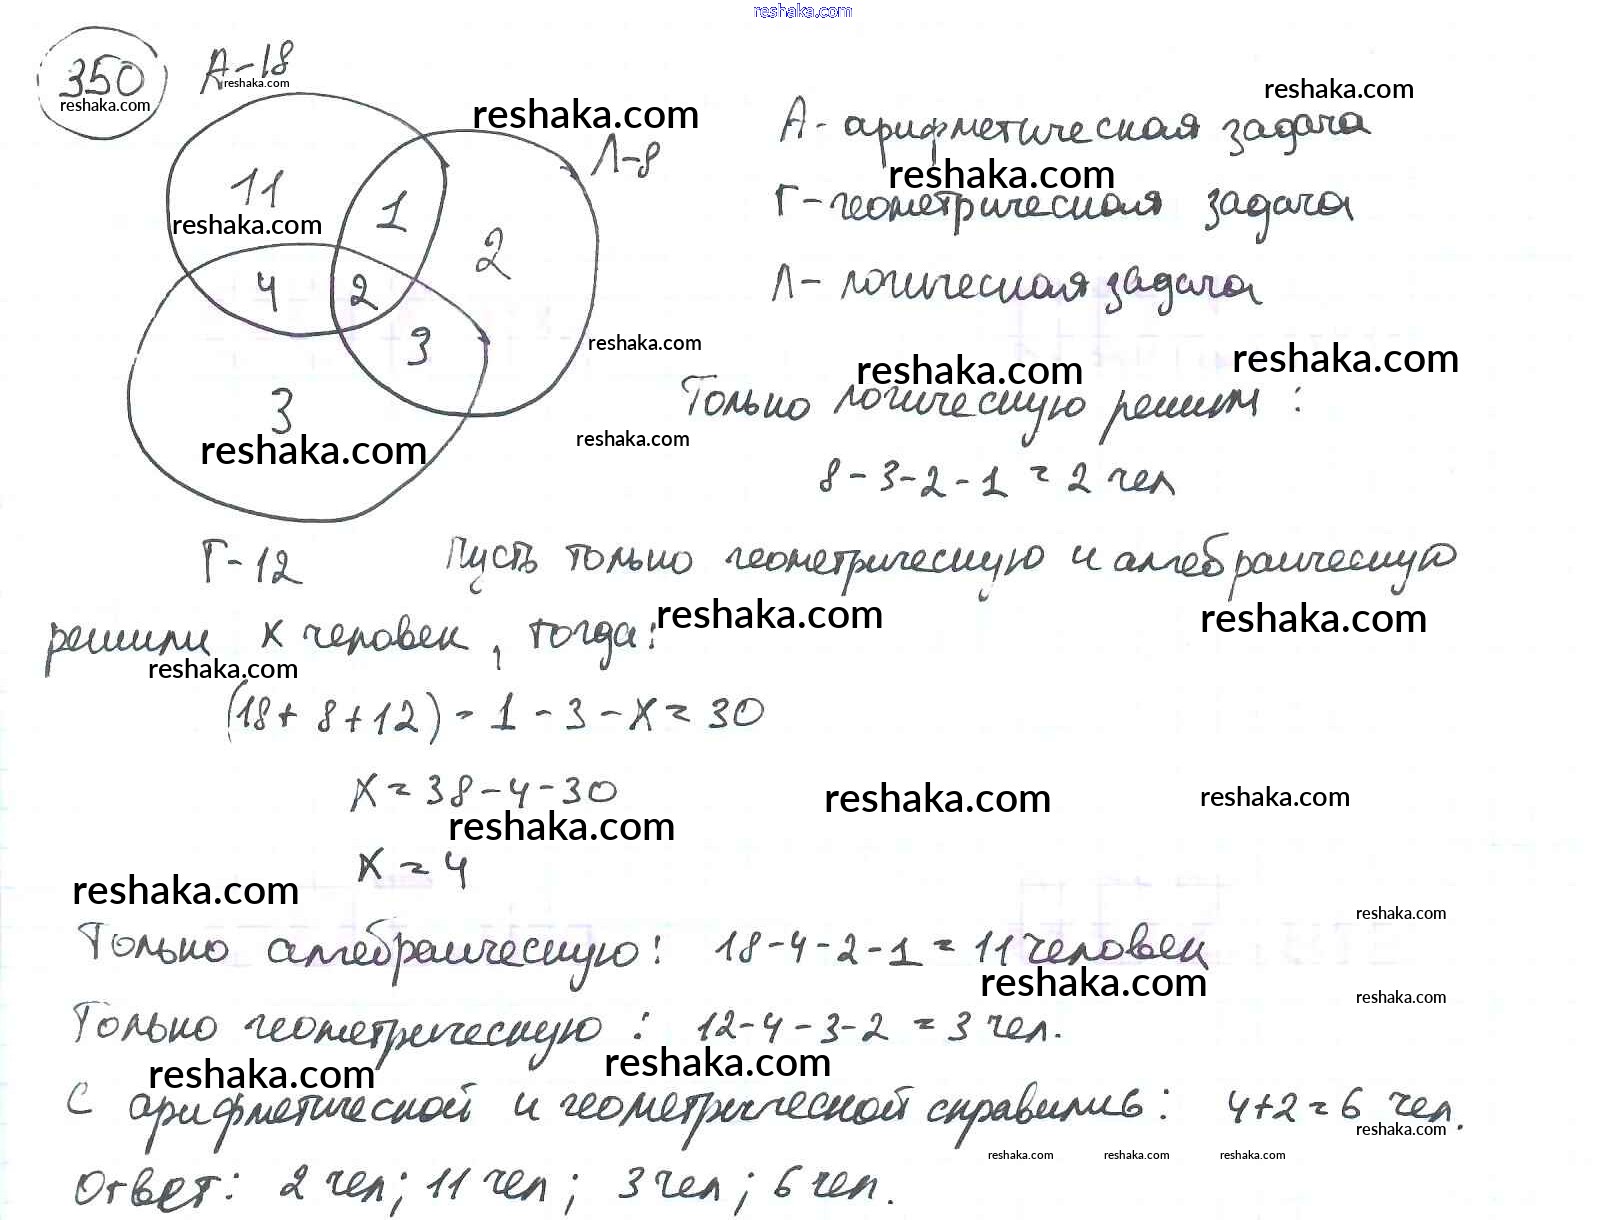 reshaka.com
350 А-18
reshaka.com reshaka.com
reshaka.com reshaka.com
А- арифметическая задача
Л-8
reshaka.com
11 1
Г-геометрическая задача
reshaka.com
2
4 2
Л- логическая задача
3
reshaka.com
reshaka.com reshaka.com
3
Только логическую решили :
reshaka.com reshaka.com
8-3-2-1 = 2 чел
Г-12 Пусть только геометрическую и алгебраическую
reshaka.com reshaka.com
решили х человек, тогда:
reshaka.com
(18+ 8+12) - 1 - 3 - х = 30
х = 38-4-30
reshaka.com reshaka.com
reshaka.com
х = 4
reshaka.com
reshaka.com
Только алгебраическую: 18-4-2-1 = 11 человек
reshaka.com
reshaka.com
Только геометрическую : 12-4-3-2 = 3 чел.
reshaka.com reshaka.com
С арифметической и геометрической справились: 4+2=6 чел.
reshaka.com
reshaka.com reshaka.com reshaka.com
Ответ: 2 чел; 11 чел; 3 чел; 6 чел.